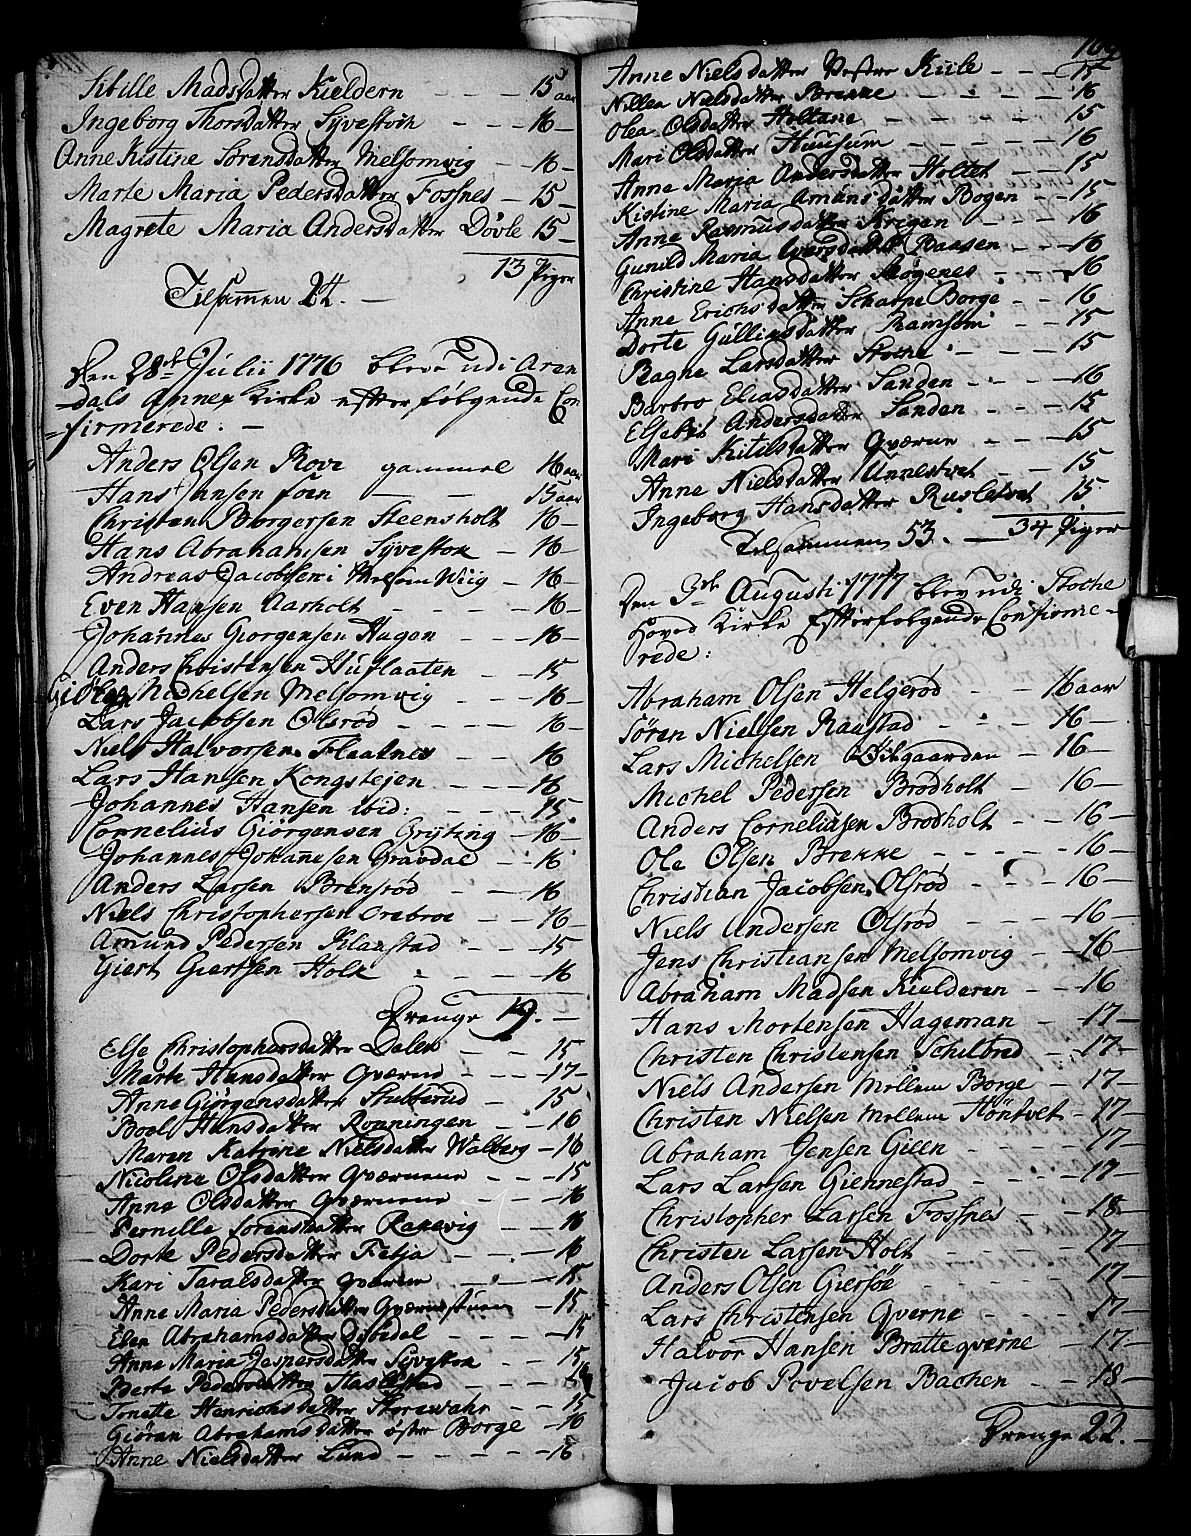 Sibille Madsdatter Kieldern - - - 15 aar
Ingeborg Thorsdatter Syvestok - - - 16 -
Anne Kistine Sørensdatter Melsomvig - - 16 -
Marte Maria Pedersdatter Fossnes - 15 -
Magrete Maria Andersdatter Døvle 15 -
13 Piger
Tilsamen 24. -
Den 28de Julii 1776 bleve udi Aren
dals Annex Kirke efterfølgende Con
firmerede. -
Anders Olsen Rove gammel 16 aar
Hans Jansen Foen - - 15 aar
Christen Borgersen Steensholt 16 -
Hans Abrahamsen Syvestok - 16 -
Andreas Jacobsen i Melsom Wiig - 16 -
Even Hansen Aarholt - - - - 16 -
Johannes Giorgensen Hagen - - 16 -
Anders Christensen Huflaaten - - 15
Michelsen Melsomvig - - 16 -
Lars Jacobsen Olsrød - - - - 16 -
Niels Halvorsen Flaatnes - - 16
Lars Hansen Kongstejen - - - 16
Johannes Hansen ibid: - - - 15
Cornelius Giörgensen Gryting - 16 -
Johannes Johannesen Gravdal - - 16
Anders Larsen Brensrød - - 16
Niels Christophersen Orebroe - - - 16 -
Amund Pedersen Klaastad - - - 15
Giert Giertsen Holt - - - 16
Drenge 19. -
Else Christophersdatter Dalen - - - 15
Marte Hansdatter Qværne - - - - 17 -
Anne Giörgensdatter Stulserud - - 15
Boel Hansdatter Rønningen - - 16
Maren Katrine Nielsdatter Walberg - 16
Nicoline Olsdatter Qværnene - - - 15
Anne Olsdatter Qværnene - - - 16
Pernille Sørensdatter Rakevig - - 16
Dorte Pedersdatter Fetja - - - - 16
Kari Taralsdatter Qværne - - - - 15
Anne Maria Pedersdatter Qværnestuen - 15
Elen Abrahamsdatter - - - - 15
Anne Maria Jespersdatter Syvestok - - 15
Berte Pedersdatter Haslestad - - -
Tonette Henrichsdatter Storevahr - - 15
Giøran Abrahamsdatter øfre Borge - 16
Anne Nielsdatter Lund - - - - 16
Anne Nielsdatter Vestre Kiile - - - 15
Nillea Nielsdatter Brekke - - - 16
Olea Olsdatter Holtane - - - - 15
Mari Olsdatter Huusum - - - - 16
Anne Maria Andersdatter Holtet - - 15
Kistine Maria Amundsdatter Bogen - - 15
Anne Rasmusdatter Krigen - - - 16
Gunild Maria Iversdatter Baasen - - - 16
Christine Hansdatter Skøgenes - - 16
Anne Erichsdatter Scharpe Borge - - 16
Dorte Gullixsdatter Ramsum - - 15
Ragne Larsdatter Stokke - - - 15
Barbro Eliasdatter Sanden - - - 16
Elsebet Andersdatter Sanden - - - 15
Mari Kitilsdatter Qværne - - - 15
Anne Nielsdatter Unnestvet - - 15
Ingeborg Hansdatter Rusletvet 15
Tilsammen 53. - 34 Piger
Den 3de Augusti 1777 blev udi Stocke
Hoved Kirke Efterfølgende Confirme-
rede:
Abraham Olsen Helgerød - - 16 aar
Sören Nielsen Raastad - - - 16 -
Lars Michelsen - - 16 -
Michel Pedersen Brodholt - - 16 -
Anders Corneliusen Brodholt - - 16 -
Ole Olsen Brekke - - - - - 16 -
Christian Jacobsen Olsrød - - - 16 -
Niels Andersen Olsrød - - - - 16 -
Jens Christiansen Melsomvig - - 16 -
Abraham Madsen Kielderen - - 16
Hans Mortensen Hageman - 17 -
Christen Christensen Schilbred - - 17 -
Niels Andersen Mellem Borge - 17 -
Christen Nielsen Mellem Höntvet - 17 -
Abraham Jensen Gieen - - - - 17 -
Lars Larsen Giennestad - - - - 17 -
Christopher Larsen Fossnes - - - 18 -
Christen Larsen Holt - - - - - 17 -
Anders Olsen Giersøe - - - - 17 -
Lars Christensen Qverne - - - 17 -
Halvor Hansen Bratteqverne - 17 -
Jacob Povelsen Bachen - - 18 -
Drenge 22. -